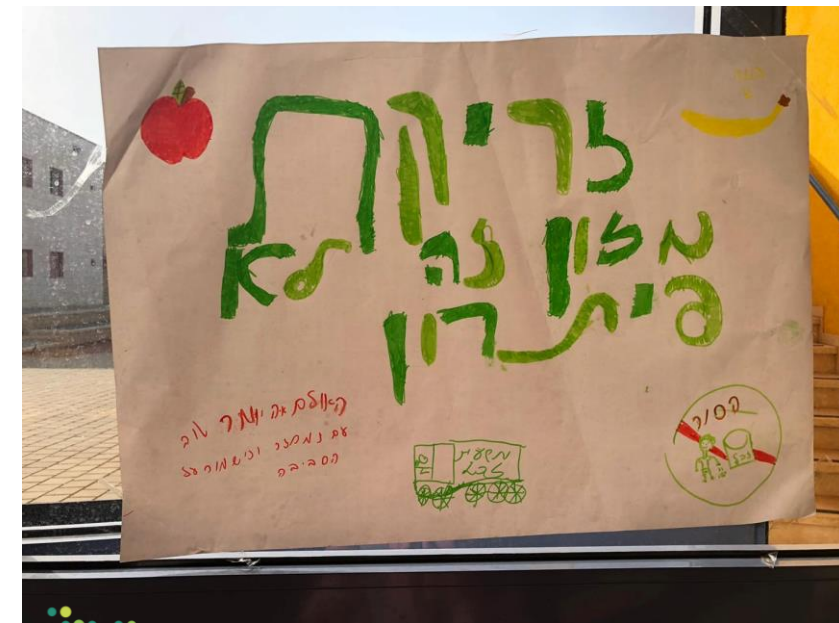 זריקת
מזון זה לא
פיתרון
יותר טוב
עם נמחזר ונשמור על
הסביבה
משאית
זבל
אסור
זבל